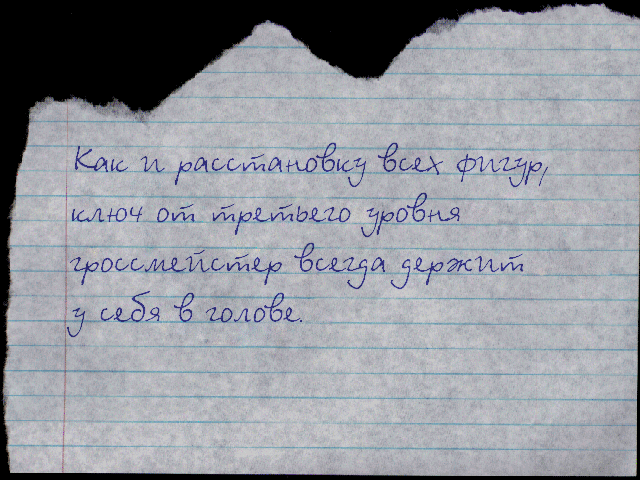 Как и расстановку всех фигур,
ключ от третьего уровня
гроссмейстер всегда держит
у себя в голове.